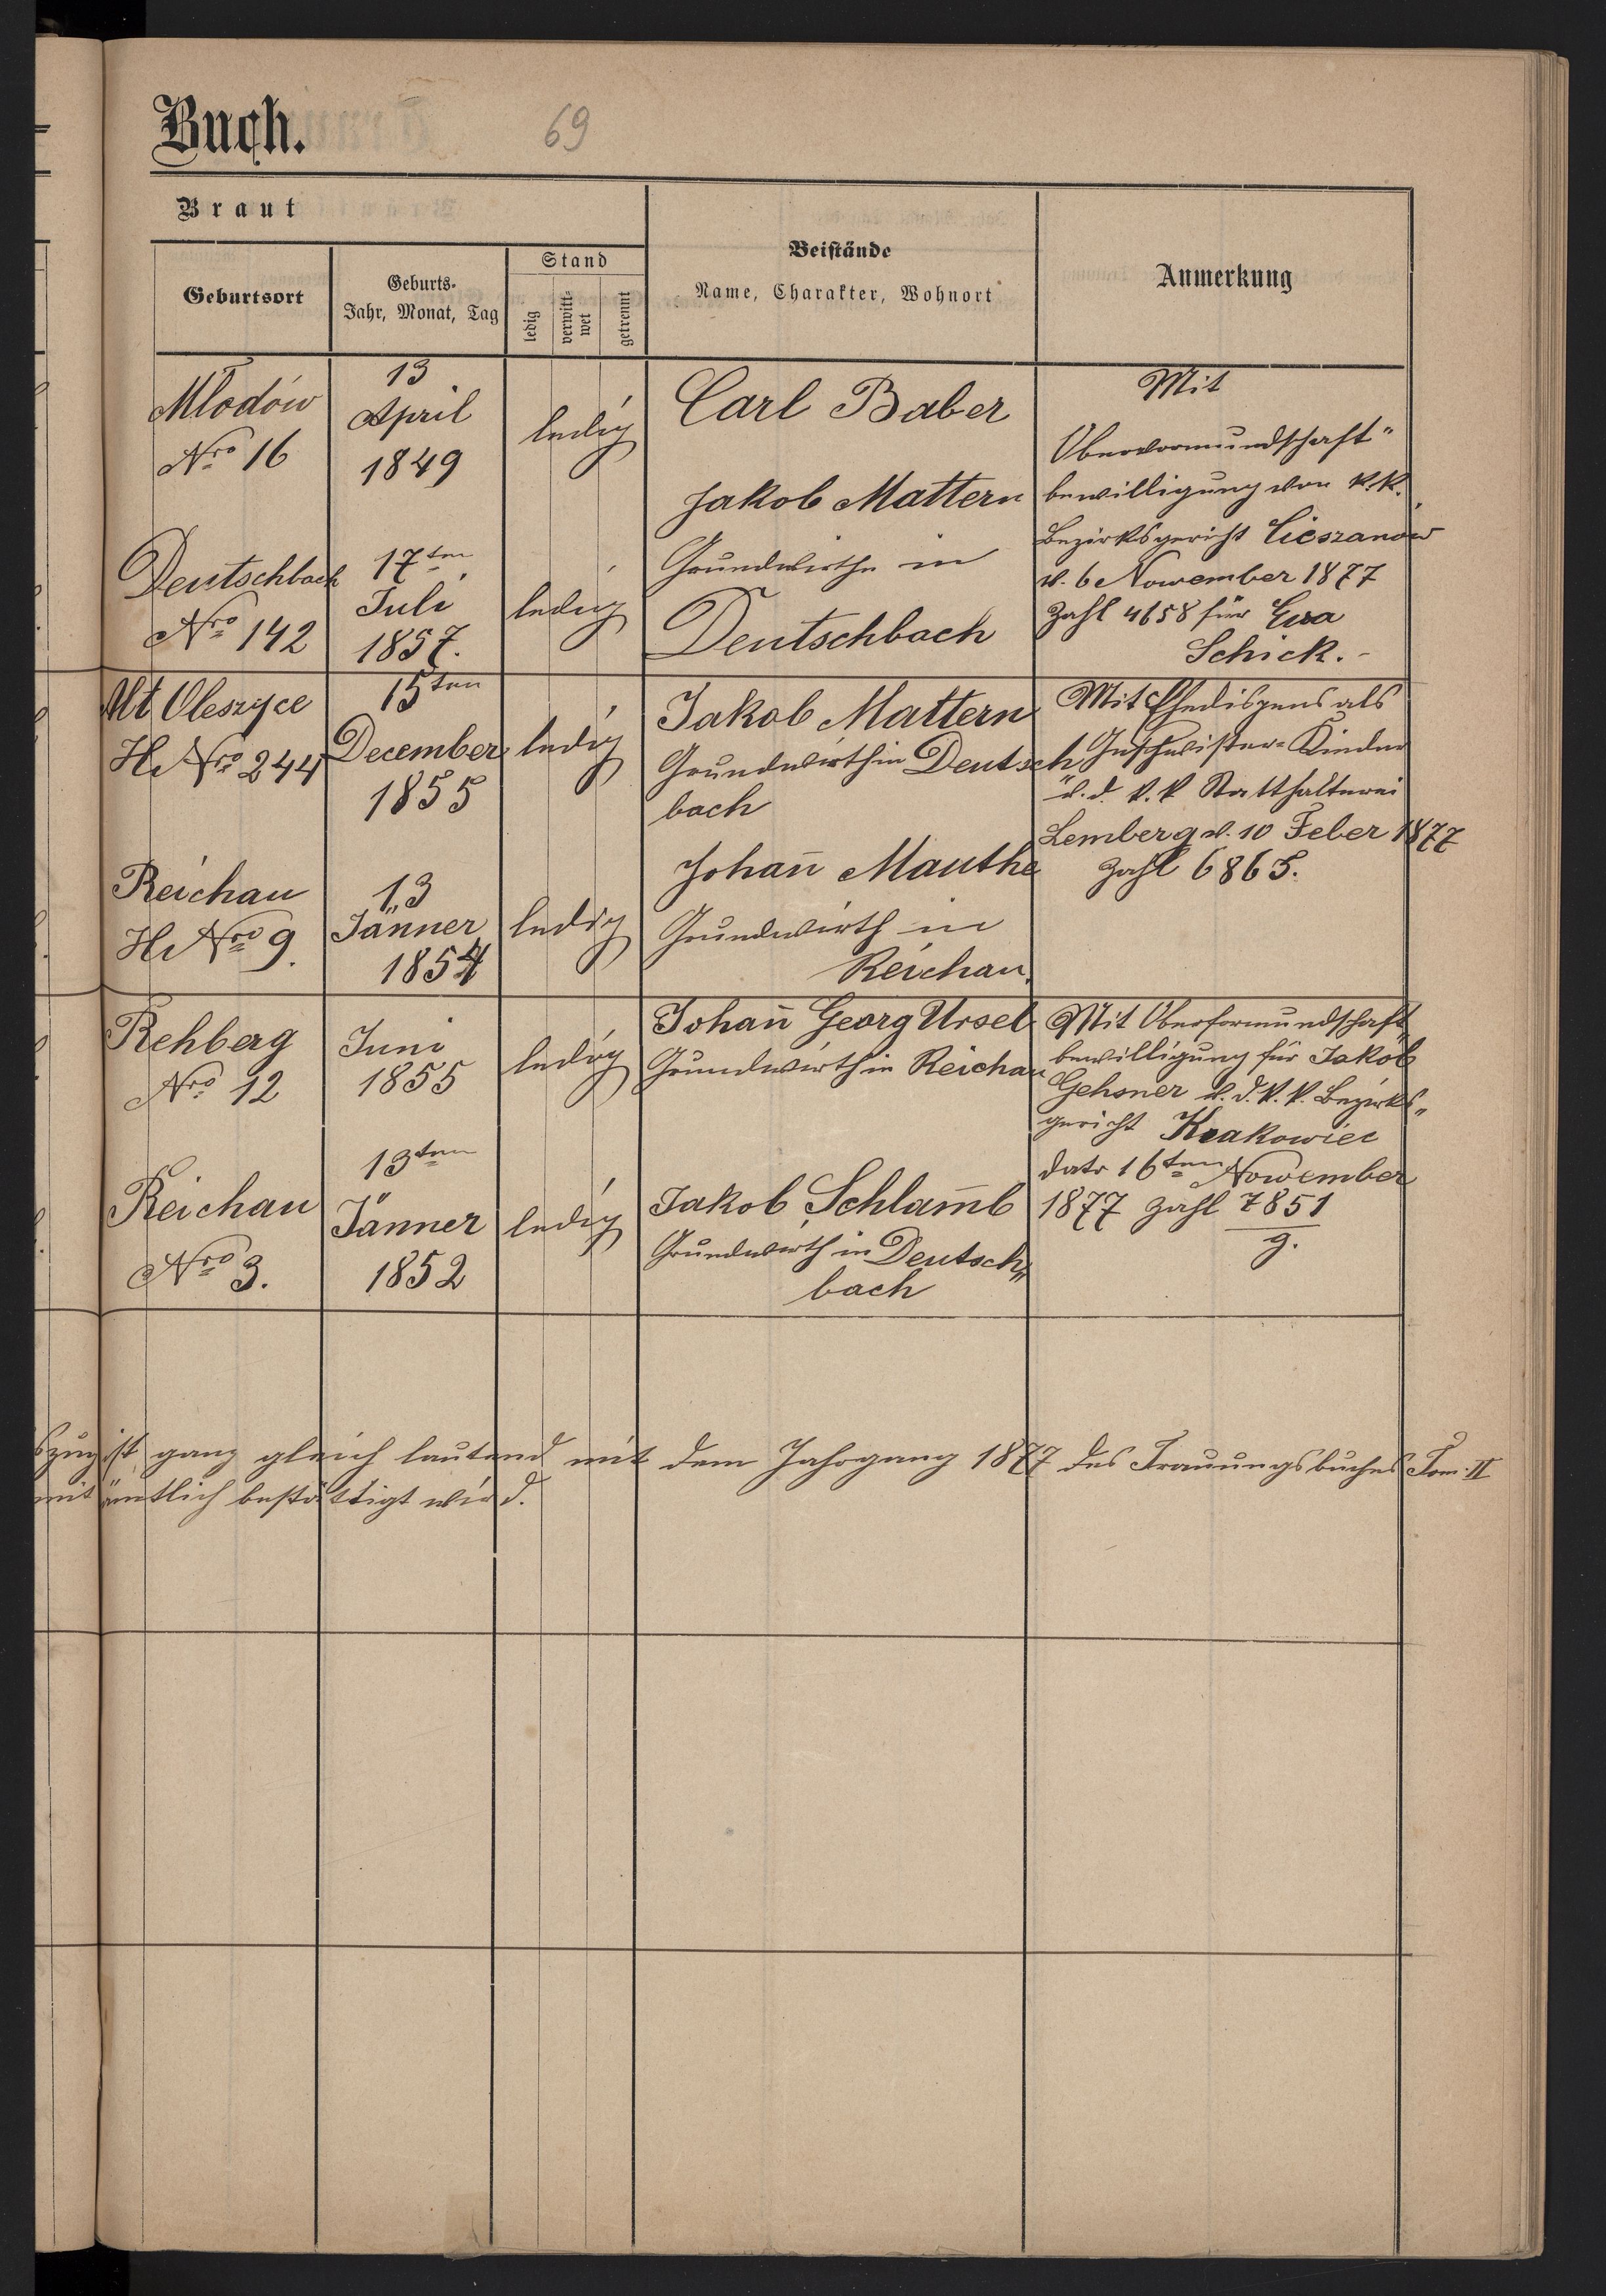 Buch.
69
Braut
Geburtsort
Geburts-
Jahr, Monat, Tag
Stand
ledig
verwitt-
wet
getrennt
Beistände
Name, Charakter, Wohnort
Anmerkung
Młodów
Nro 16
13
April
1849
ledig
Carl Baber
Jakob Mattern
Mit
Obervormundschaft"
bewilligung von k.k.
Bezirksgericht Cieszanów
d. 6 Nowember 1877
Zahl 4658 für Ewa
Schick.-
Deutschbach
Nro 142
17ten
Juli
1857.
ledig
Grundwirthe in
Deutschbach
Alt Oleszyce
H. Nro 244
15ten
December
1855
ledig
Jakob Mattern
Grundwirth in Deutsch
bach
Mit Ehedispens als
Geschwister-Kinder
v. d. k. k Statthalterei
Lemberg d. 10 Feber 1877
Zahl 6865.
Reichau
H. Nro 9.
13
Jänner
1854
ledig
Johan̄ Mauthe
Grundwirth in
Reichau.
Rehberg
Nro 12
Juni
1855
ledig
Johan̄ Georg Ursel
Grundwirth in Reichau
Mit Oberformundschaft"
bewilligung für Jakob
Gehsner v. d. k. k. Bezirks"
gericht Krakowiec
dato 16ten Nowember
1877 Zahl 7851
g.
Reichau
Nro 3.
13ten
Jänner
1852
ledig
Jakob Schlam̄b
Grundwirth in Deutsch"
bach
szug ist ganz gleich lautend mit dem Jahrgang 1877 des Trauungsbuches Tom. II
mit ämtlich bestättigt wird.